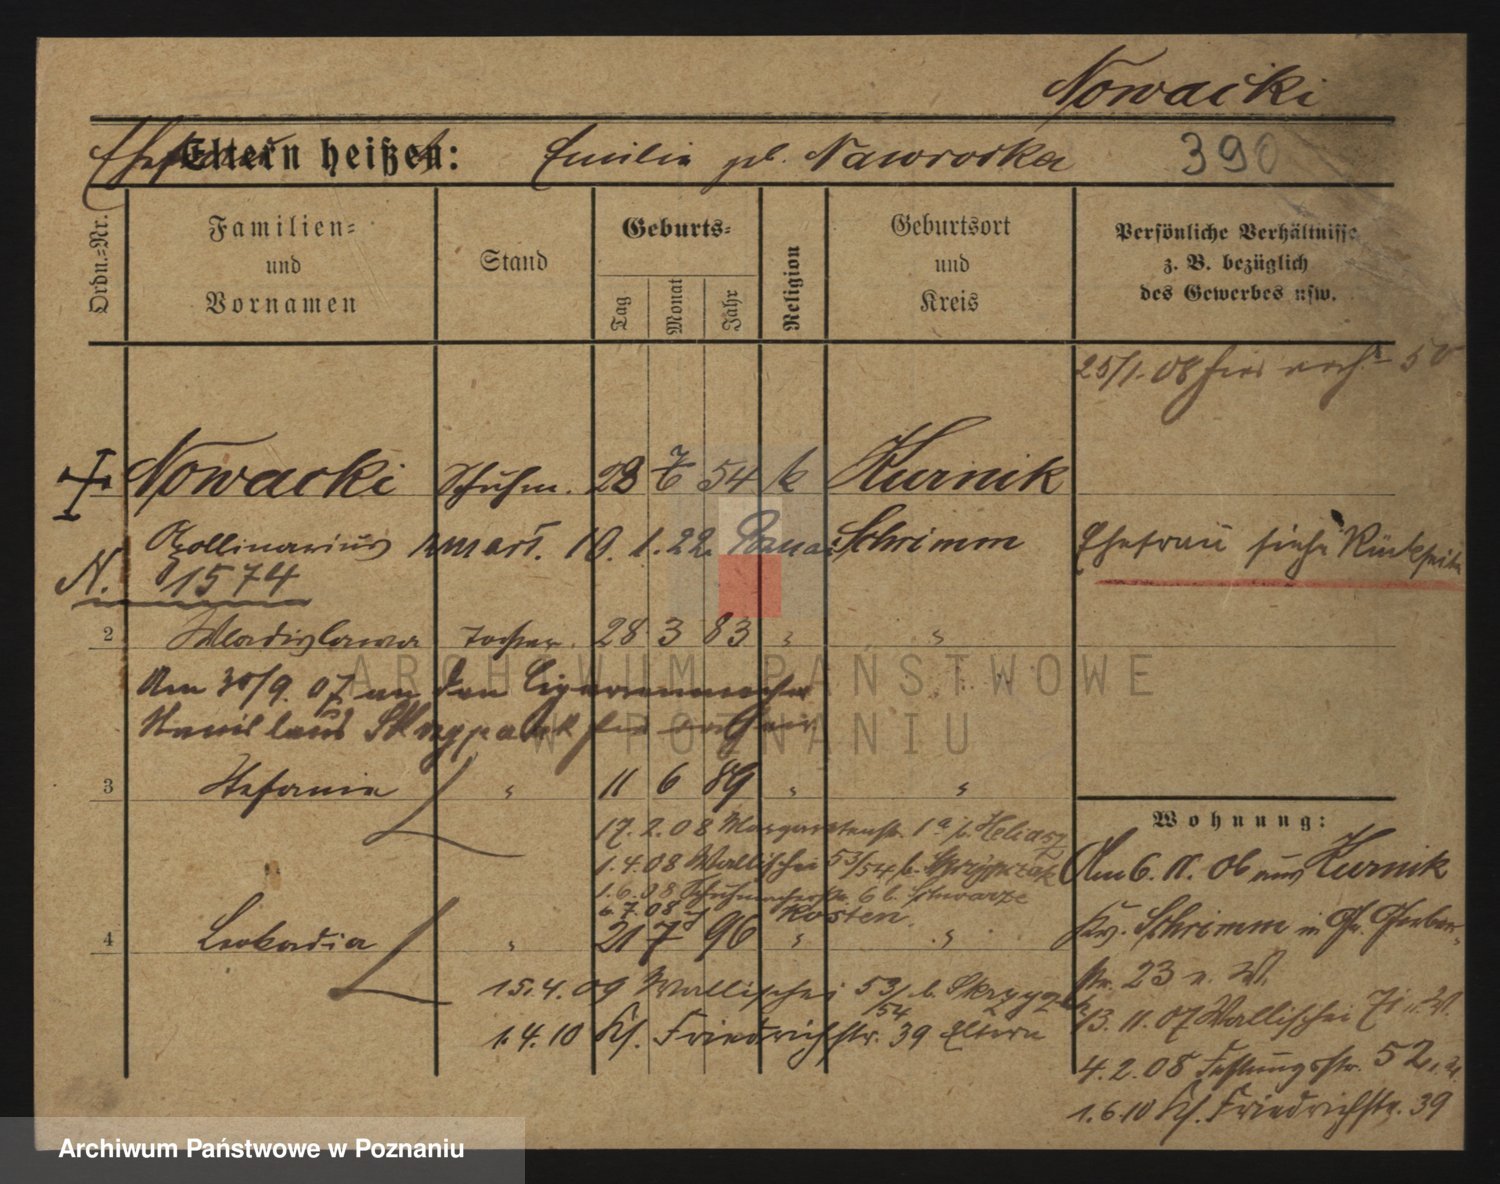 Nowacki
Ehefrau
Eltern heißen: Emilie gb. Nawrocka 390
Ordn.-Nr.
Familien-
und
Vornamen
Stand
Geburts-
Tag
Monat
Jahr
Religion
Geburtsort
und
Kreis
Persönliche Verhältnisse
z. B. bezüglich
des Gewerbes usw.
25/1. 08 hier
Nowacki Schuhm. 28 7 54 k Kurnik
Apollinarius 10. 1. 22. Schrimm Ehefrau siehe Rückseite
N. 1574
2 Wladislawa Tochter. 28 3 83 " "
Am 30/9. 07 an den Cigarrenmacher
Stanislaus Skrzypczak
3 Stefanie " 11 6 89 " "
17. 2. 08 Margaretenstr. 1a b. Heliasz
1. 4. 08 Wallischei 53/54 b. Skrzypczak
1. 6. 08 Schuhmacherstr. 6 b. Schwarze
6. 7. 08 Kosten.
4 Leokadia " 21 7 96 " "
15. 4. 09 Wallischei 53/54 b. Skrzypczak
1. 4. 10 Kl. Friedrichstr. 39 Eltern
Wohnung:
Am 6. 11. 06 aus Kurnik
Kr. Schrimm in Gr. Gerber-
str. 23 u. W.
13. 11. 07 Wallischei 71 u. W.
4. 2. 08 Festungsstr. 52
1. 6. 10 Kl. Friedrichstr. 39
ARCHIWUM PAŃSTWOWE
W POZNANIU
Archiwum Państwowe w Poznaniu